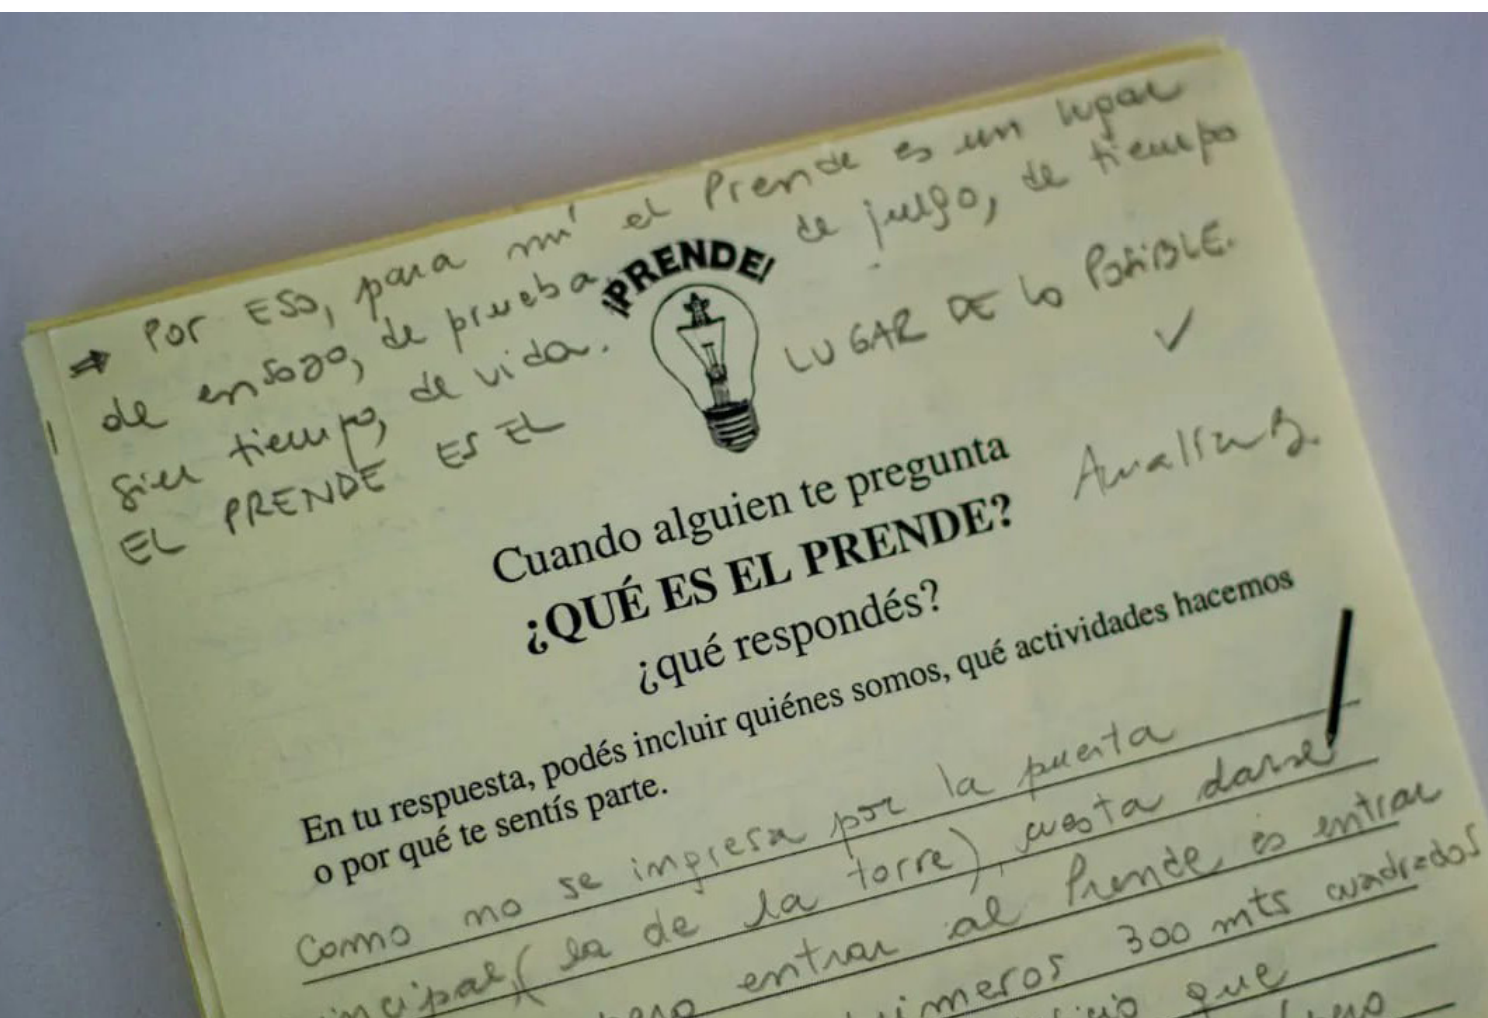 ⇒ Por ESO, para mí el Prende es un lugar
de ensayo, de prueba, de juego, de tiempo
sin tiempo, de vida.
EL PRENDE ES EL LUGAR DE lo PosiBLE.
¡PRENDE!
Cuando alguien te pregunta
¿QUÉ ES EL PRENDE?
¿qué respondés?
En tu respuesta, podés incluir quiénes somos, qué actividades hacemos
o por qué te sentís parte.
Como no se ingresa por la puerta
(la de la torre), cuesta darse
entrar al Prende es entrar
300 mts cuadrados
que